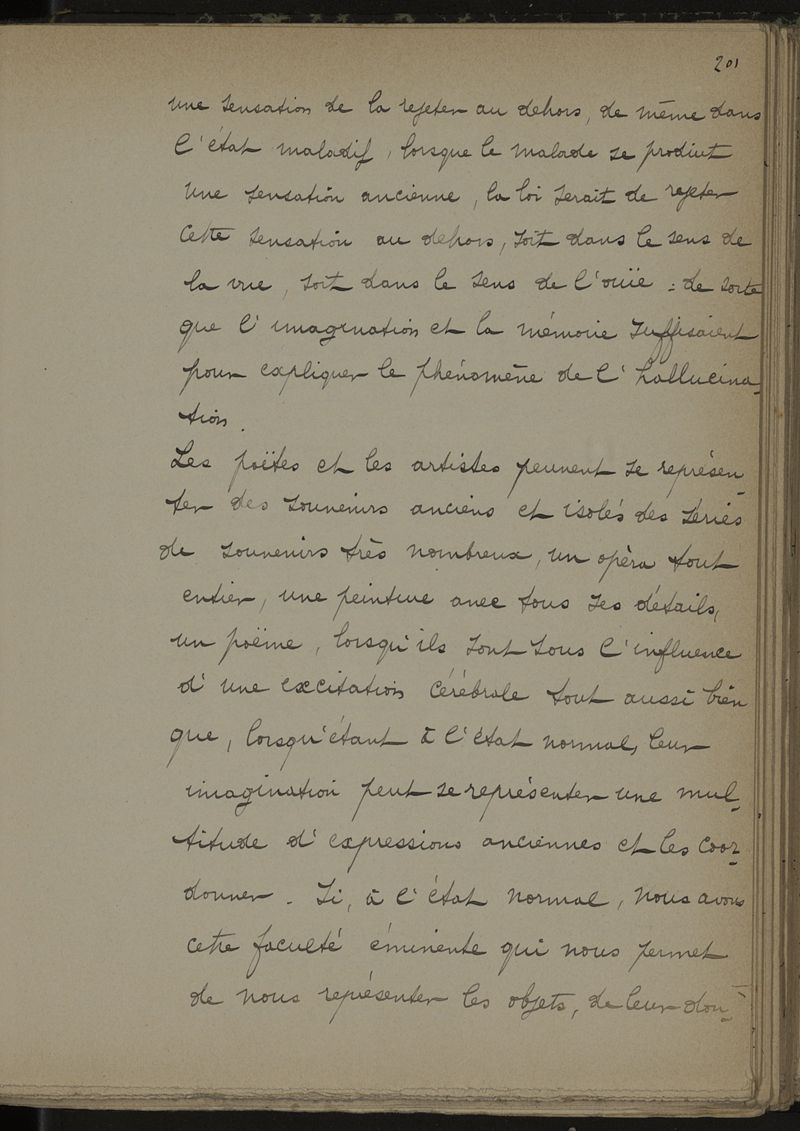 201
une sensation de la rejeter au dehors, de même dans
l'état maladif, lorsque le malade se produit
une sensation ancienne, la loi serait de rejeter
cette sensation au dehors, soit dans le sens de
la vue, soit dans le sens de l'ouïe : de sorte
que l'imagination et la mémoire suffisaient
pour expliquer le phénomène de l'hallucina-
tion.
Les poëtes et les artistes peuvent se représen-
ter des souvenirs anciens et isolés des séries
de souvenirs très nombreux, un opéra tout
entier, une peinture avec tous ses détails,
un poëme, lorsqu'ils sont sous l'influence
d'une excitation cérébrale tout aussi bien
que, lorsqu'étant à l'état normal, leur
imagination peut se représenter une mul-
titude d'expressions anciennes et les coor-
donner. Si, à l'état normal, nous avons
cette faculté éminente qui nous permet
de nous représenter les objets, de leur don-